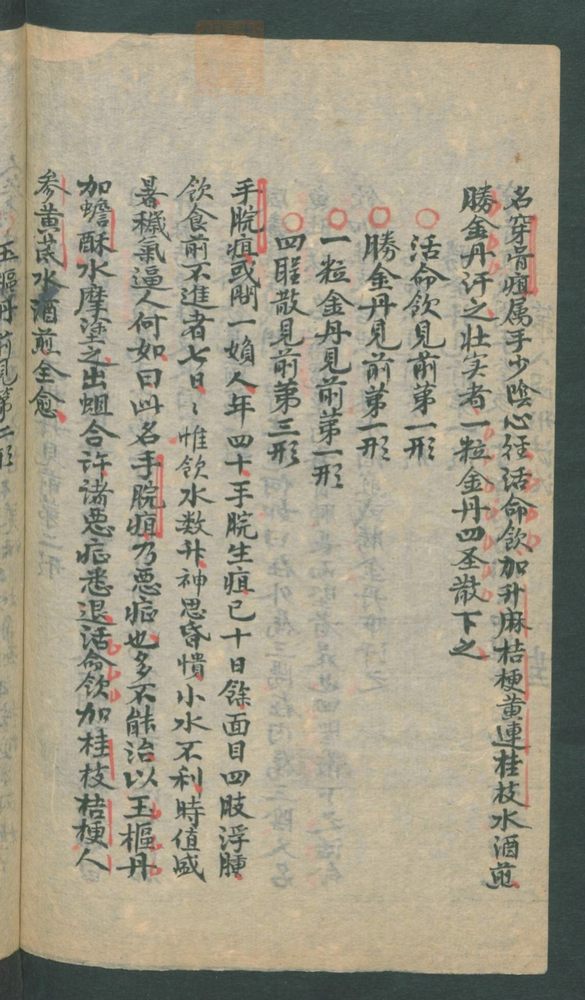 名穿骨疽属手少陰心经活命飲加升麻桔梗黄連桂枝水酒煎
勝金丹汗之壮实者一粒金丹四圣散下之
○活命飲見前第一形
○勝金丹見前第一形
○一粒金丹見前第一形
○四聖散見前第三形
手腕疽或問一婦人年四十手腕生疽已十日餘面目四肢浮腫
飲食前不進者七日〻惟飲水数升神思昏憒小水不利時值盛
暑穢氣逼人何如曰此名手腕疽乃悪症也多不能治以玉樞丹
加蟾酥水摩塗之出蛆合许诸悪症悉退活命飲加桂枝桔梗人
参黄芪水酒煎全愈
玉樞丹前見第二形